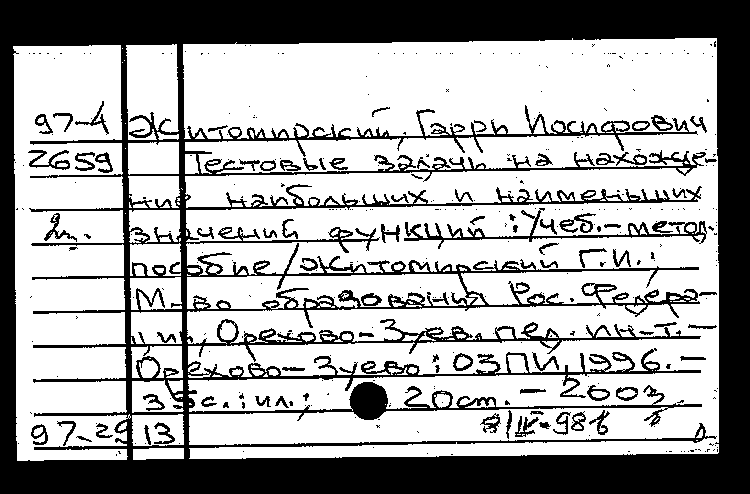 97-4 Житомирский, Гарри Иосифович
2659 Тестовые задачи на нахожде-
ние наибольших и наименьших
2ц. значений функций : Учеб.-метод.
пособие / Житомирский Г.И.;
М-во образования Рос. Федера-
ции, Орехово-Зуев. пед. ин-т. –
Орехово-Зуево : ОЗПИ, 1996. –
35 с. : ил. ; 20 ст. –
97-2913